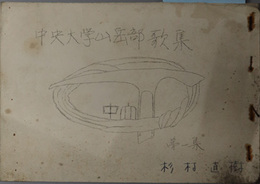 中央大学山岳部歌集
中山
第一集
杉村直樹